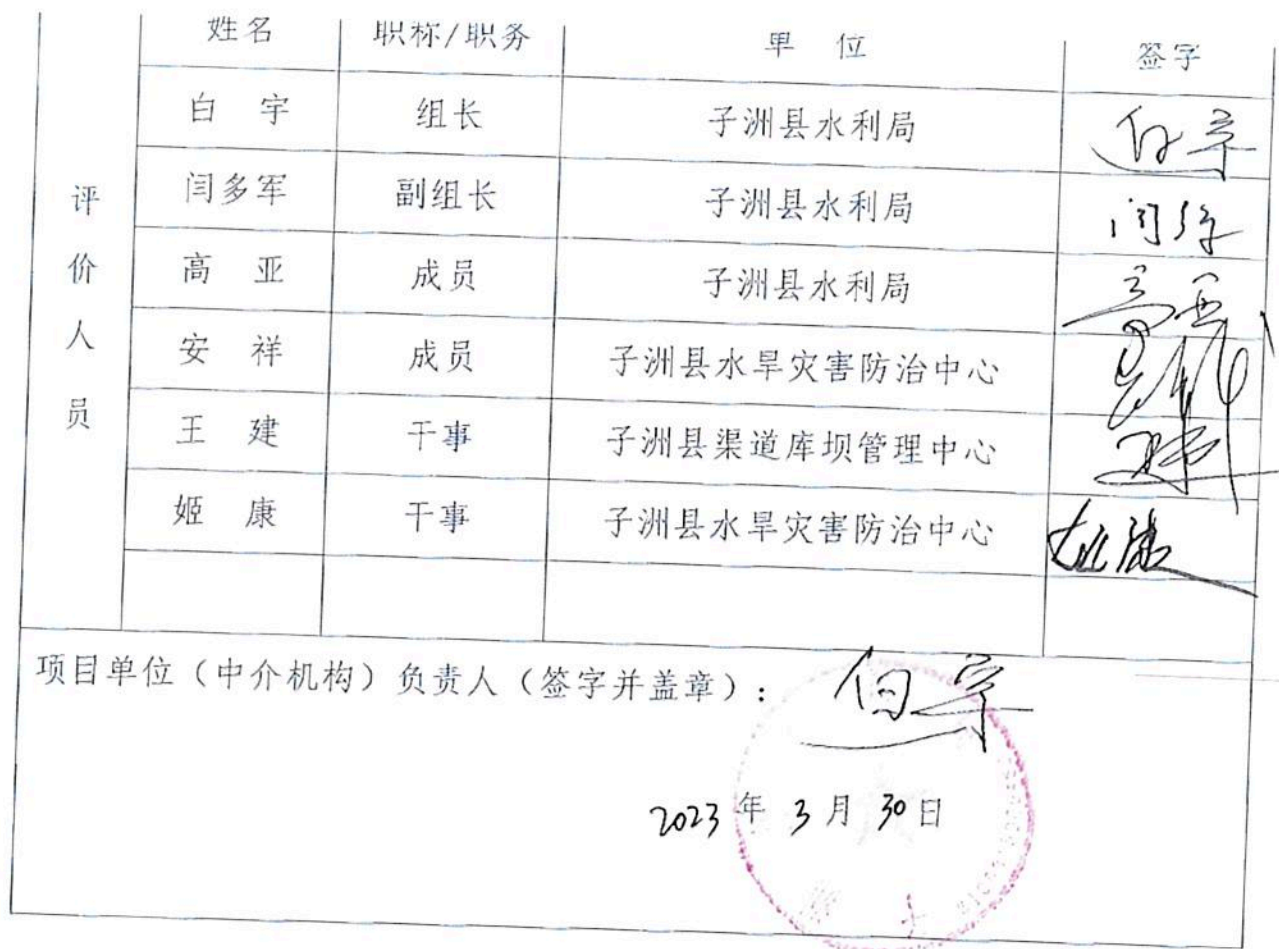 姓名 职称/职务 单 位 签字
白 宇 组长 子洲县水利局 白宇
闫多军 副组长 子洲县水利局
高 亚 成员 子洲县水利局 高亚
安 祥 成员 子洲县水旱灾害防治中心
王 建 干事 子洲县渠道库坝管理中心 王建
姬 康 干事 子洲县水旱灾害防治中心 姬康
评价人员
项目单位（中介机构）负责人（签字并盖章）： 白宇
2023年 3月 30日